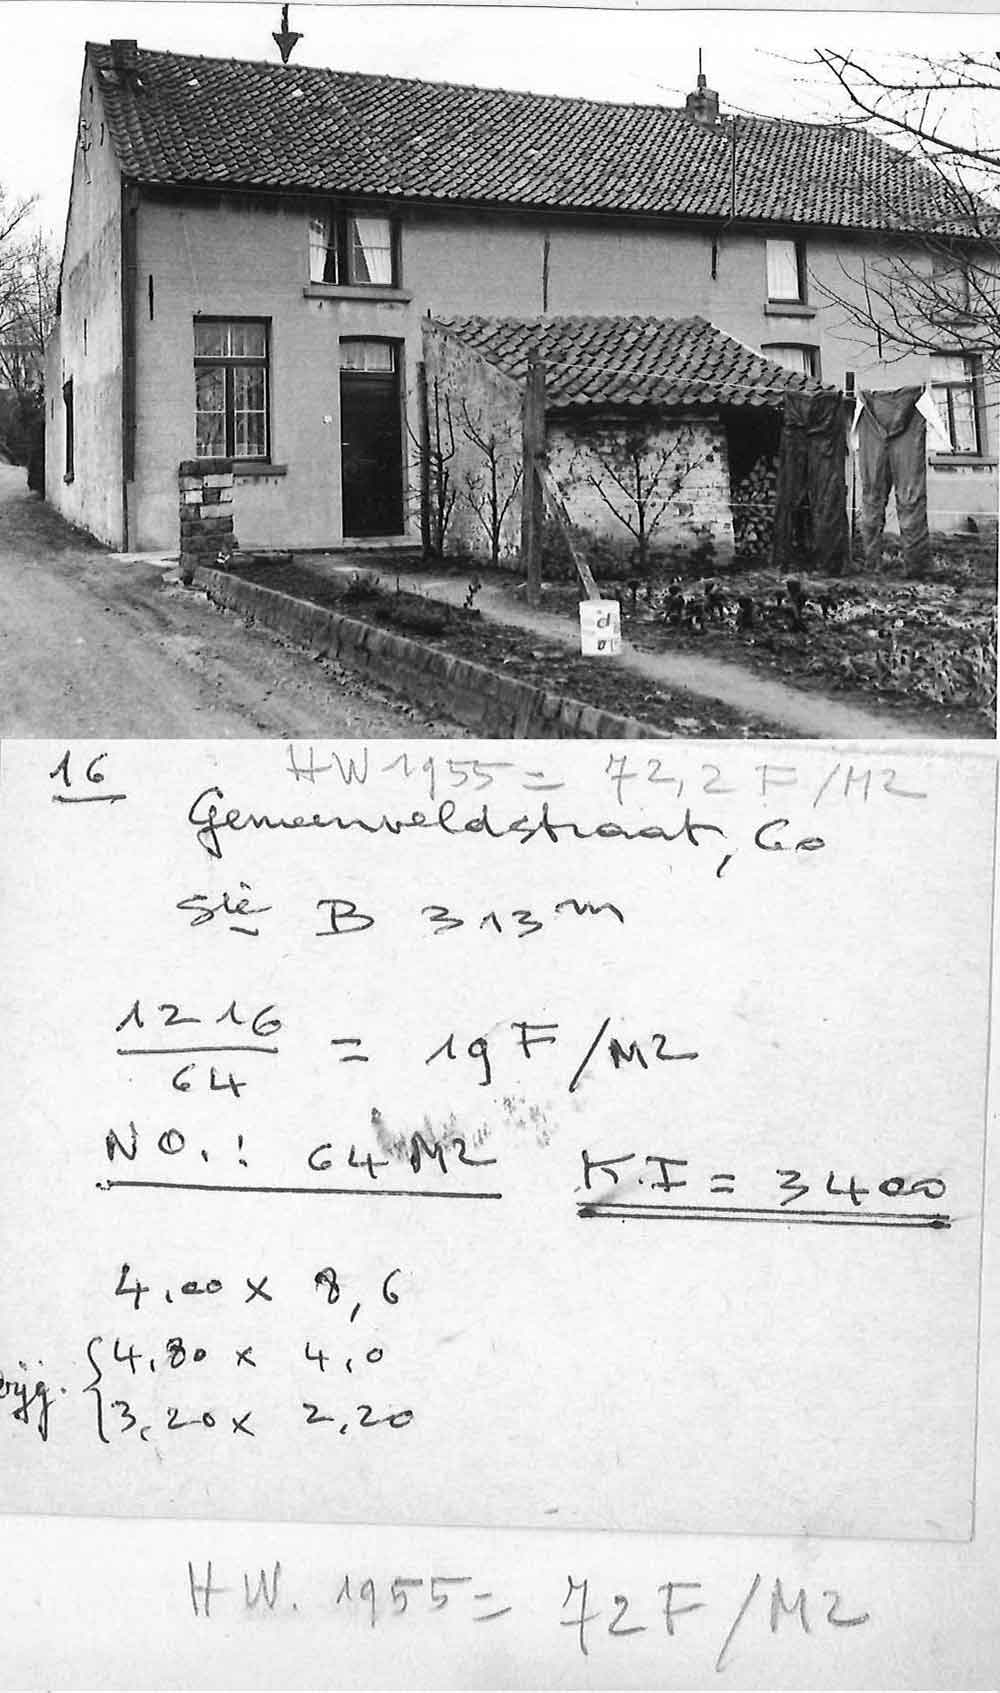 d
01
16
HW 1955 = 72,2 F/M2
Gemeenveldstraat, 60
Sie B 313 m
1216
64
= 19 F/M2
NO.: 64 M2
K.I = 3400
4,00 x 8,6
4,80 x 4,0
bijg.
3,20 x 2,20
HW. 1955 = 72 F/M2